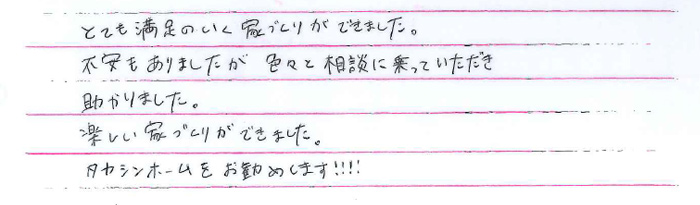 とても満足のいく家づくりができました。
不安もありましたが色々と相談に乗っていただき
助かりました。
楽しい家づくりができました。
タカシンホームをお勧めします!!!!